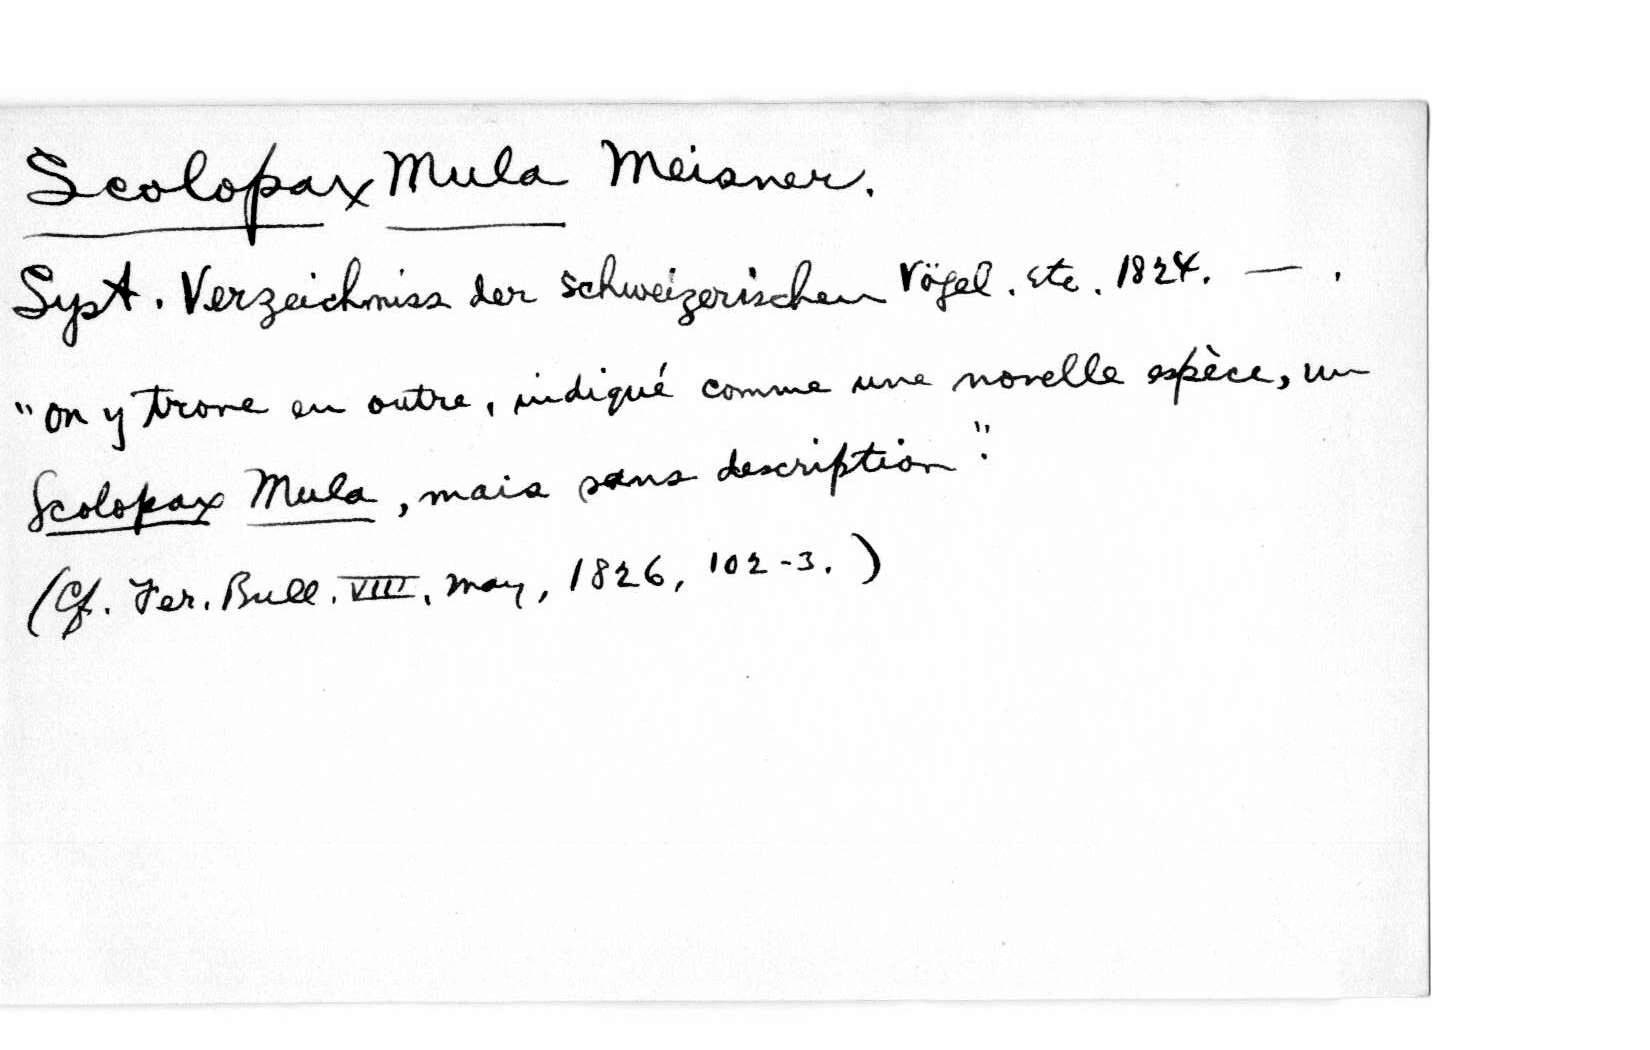 Scolopax Mula Meisner.
Syst. Verzeichniss der schweizerischen Vögel. etc. 1824. — .
"on y trove en outre, indiqué comme une novelle espèce, un
Scolopax Mula, mais sans description".
(Cf. Fer. Bull. VIII. May, 1826, 102-3.)